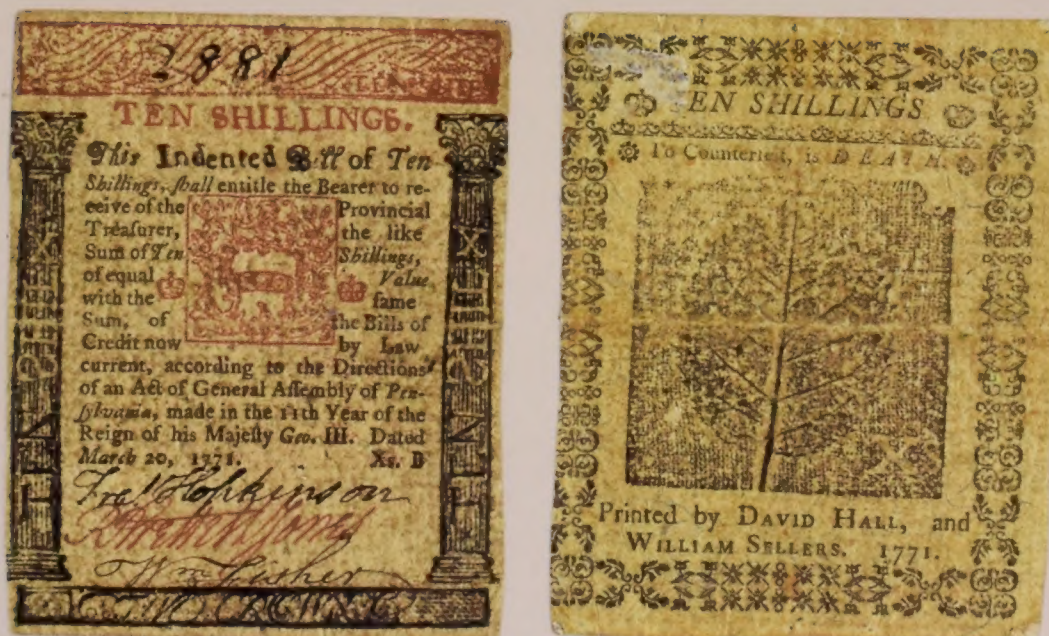 2881
TEN SHILLINGS.
This Indented Bill of Ten
Shillings, ſhall entitle the Bearer to re-
ceive of the Provincial
Treaſurer, the like
Sum of Ten Shillings,
of equal Value
with the ſame
Sum, of the Bills of
Credit now by Law
current, according to the Directions
of an Act of General Aſſembly of Pen-
ſylvania, made in the 11th Year of the
Reign of his Majeſty Geo. III. Dated
March 20, 1771. Xs. B
Fras. Hopkinson
Jones
Wm Fisher
TWO CROWNS
TEN SHILLINGS
To Counterfeit, is DEATH.
Printed by DAVID HALL, and
WILLIAM SELLERS. 1771.